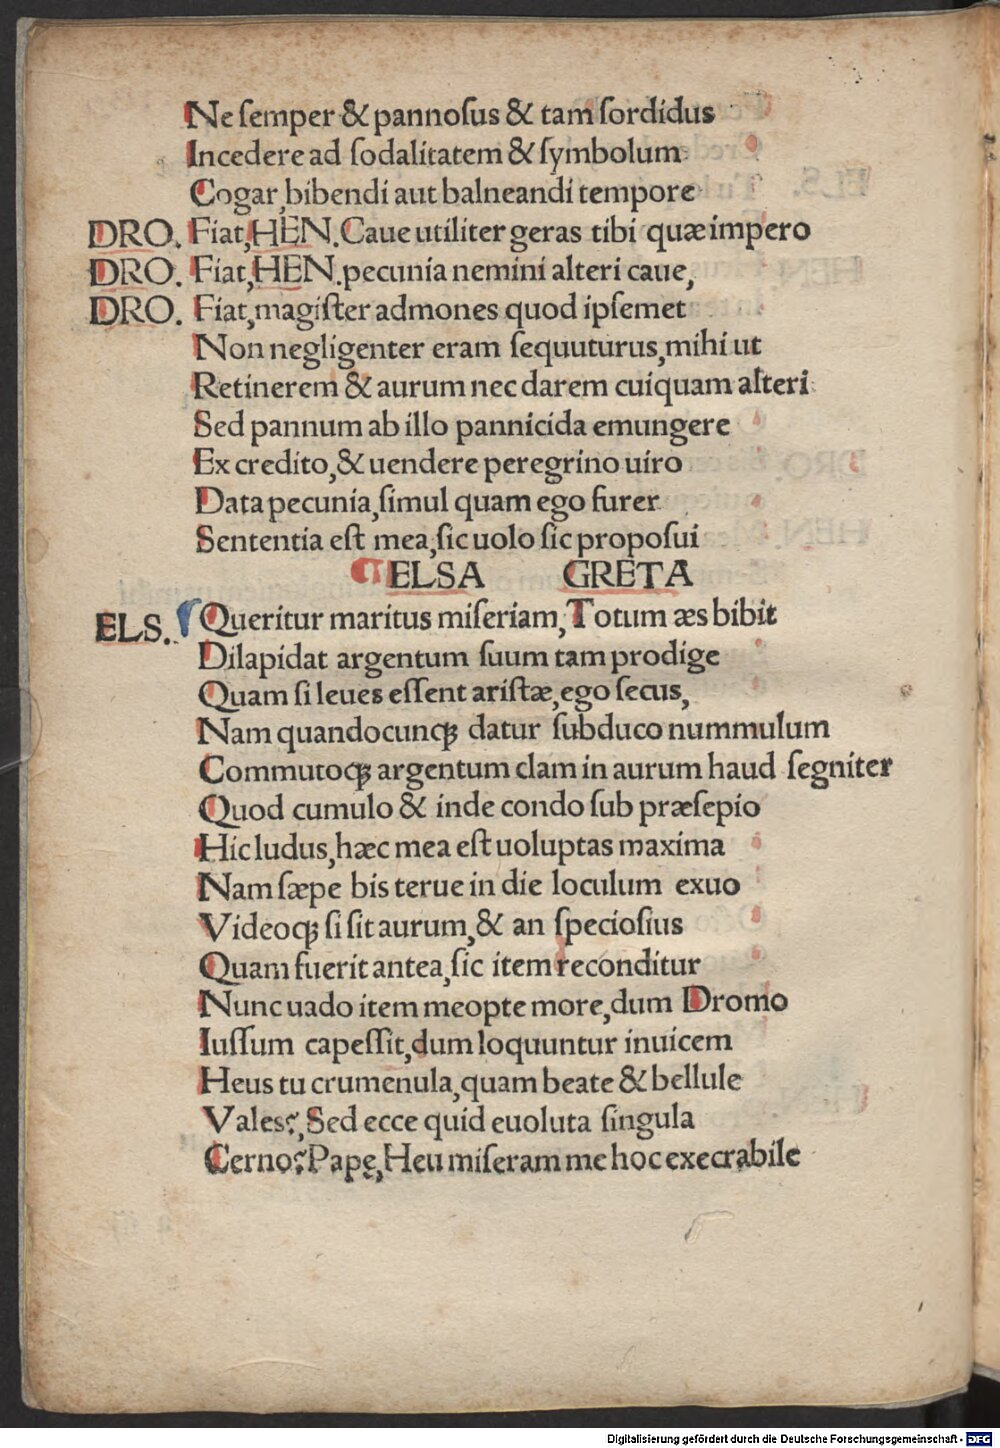 Ne ſemper & pannoſus & tam ſordidus
Incedere ad ſodalitatem & ſymbolum
Cogar, bibendi aut balneandi tempore
DRO. Fiat, HEN. Caue utiliter geras tibi quæ impero
DRO. Fiat, HEN. pecunia nemini alteri caue,
DRO. Fiat, magiſter admones quod ipſemet
Non negligenter eram ſequuturus, mihi ut
Retinerem & aurum nec darem cuiquam alteri
Sed pannum ab illo pannicida emungere
Ex credito, & uendere peregrino uiro
Data pecunia, ſimul quam ego furer
Sententia eſt mea, ſic uolo ſic propoſui
¶ ELSA GRETA
ELS. Queritur maritus miſeriam, Totum æs bibit
Dilapidat argentum ſuum tam prodige
Quam ſi leues eſſent ariſtæ, ego ſecus,
Nam quandocunqꝫ datur ſubduco nummulum
Commutoqꝫ argentum clam in aurum haud ſegniter
Quod cumulo & inde condo ſub præſepio
Hic ludus, hæc mea eſt uoluptas maxima
Nam ſæpe bis terue in die loculum exuo
Videoqꝫ ſi ſit aurum, & an ſpecioſius
Quam fuerit antea, ſic item reconditur
Nunc uado item meopte more, dum Dromo
Iuſſum capeſſit, dum loquuntur inuicem
Heus tu crumenula, quam beate & bellule
Vales?, Sed ecce quid euoluta ſingula
Cerno? Papę, Heu miſeram me hoc execrabile
Digitalisierung gefördert durch die Deutsche Forschungsgemeinschaft - DFG